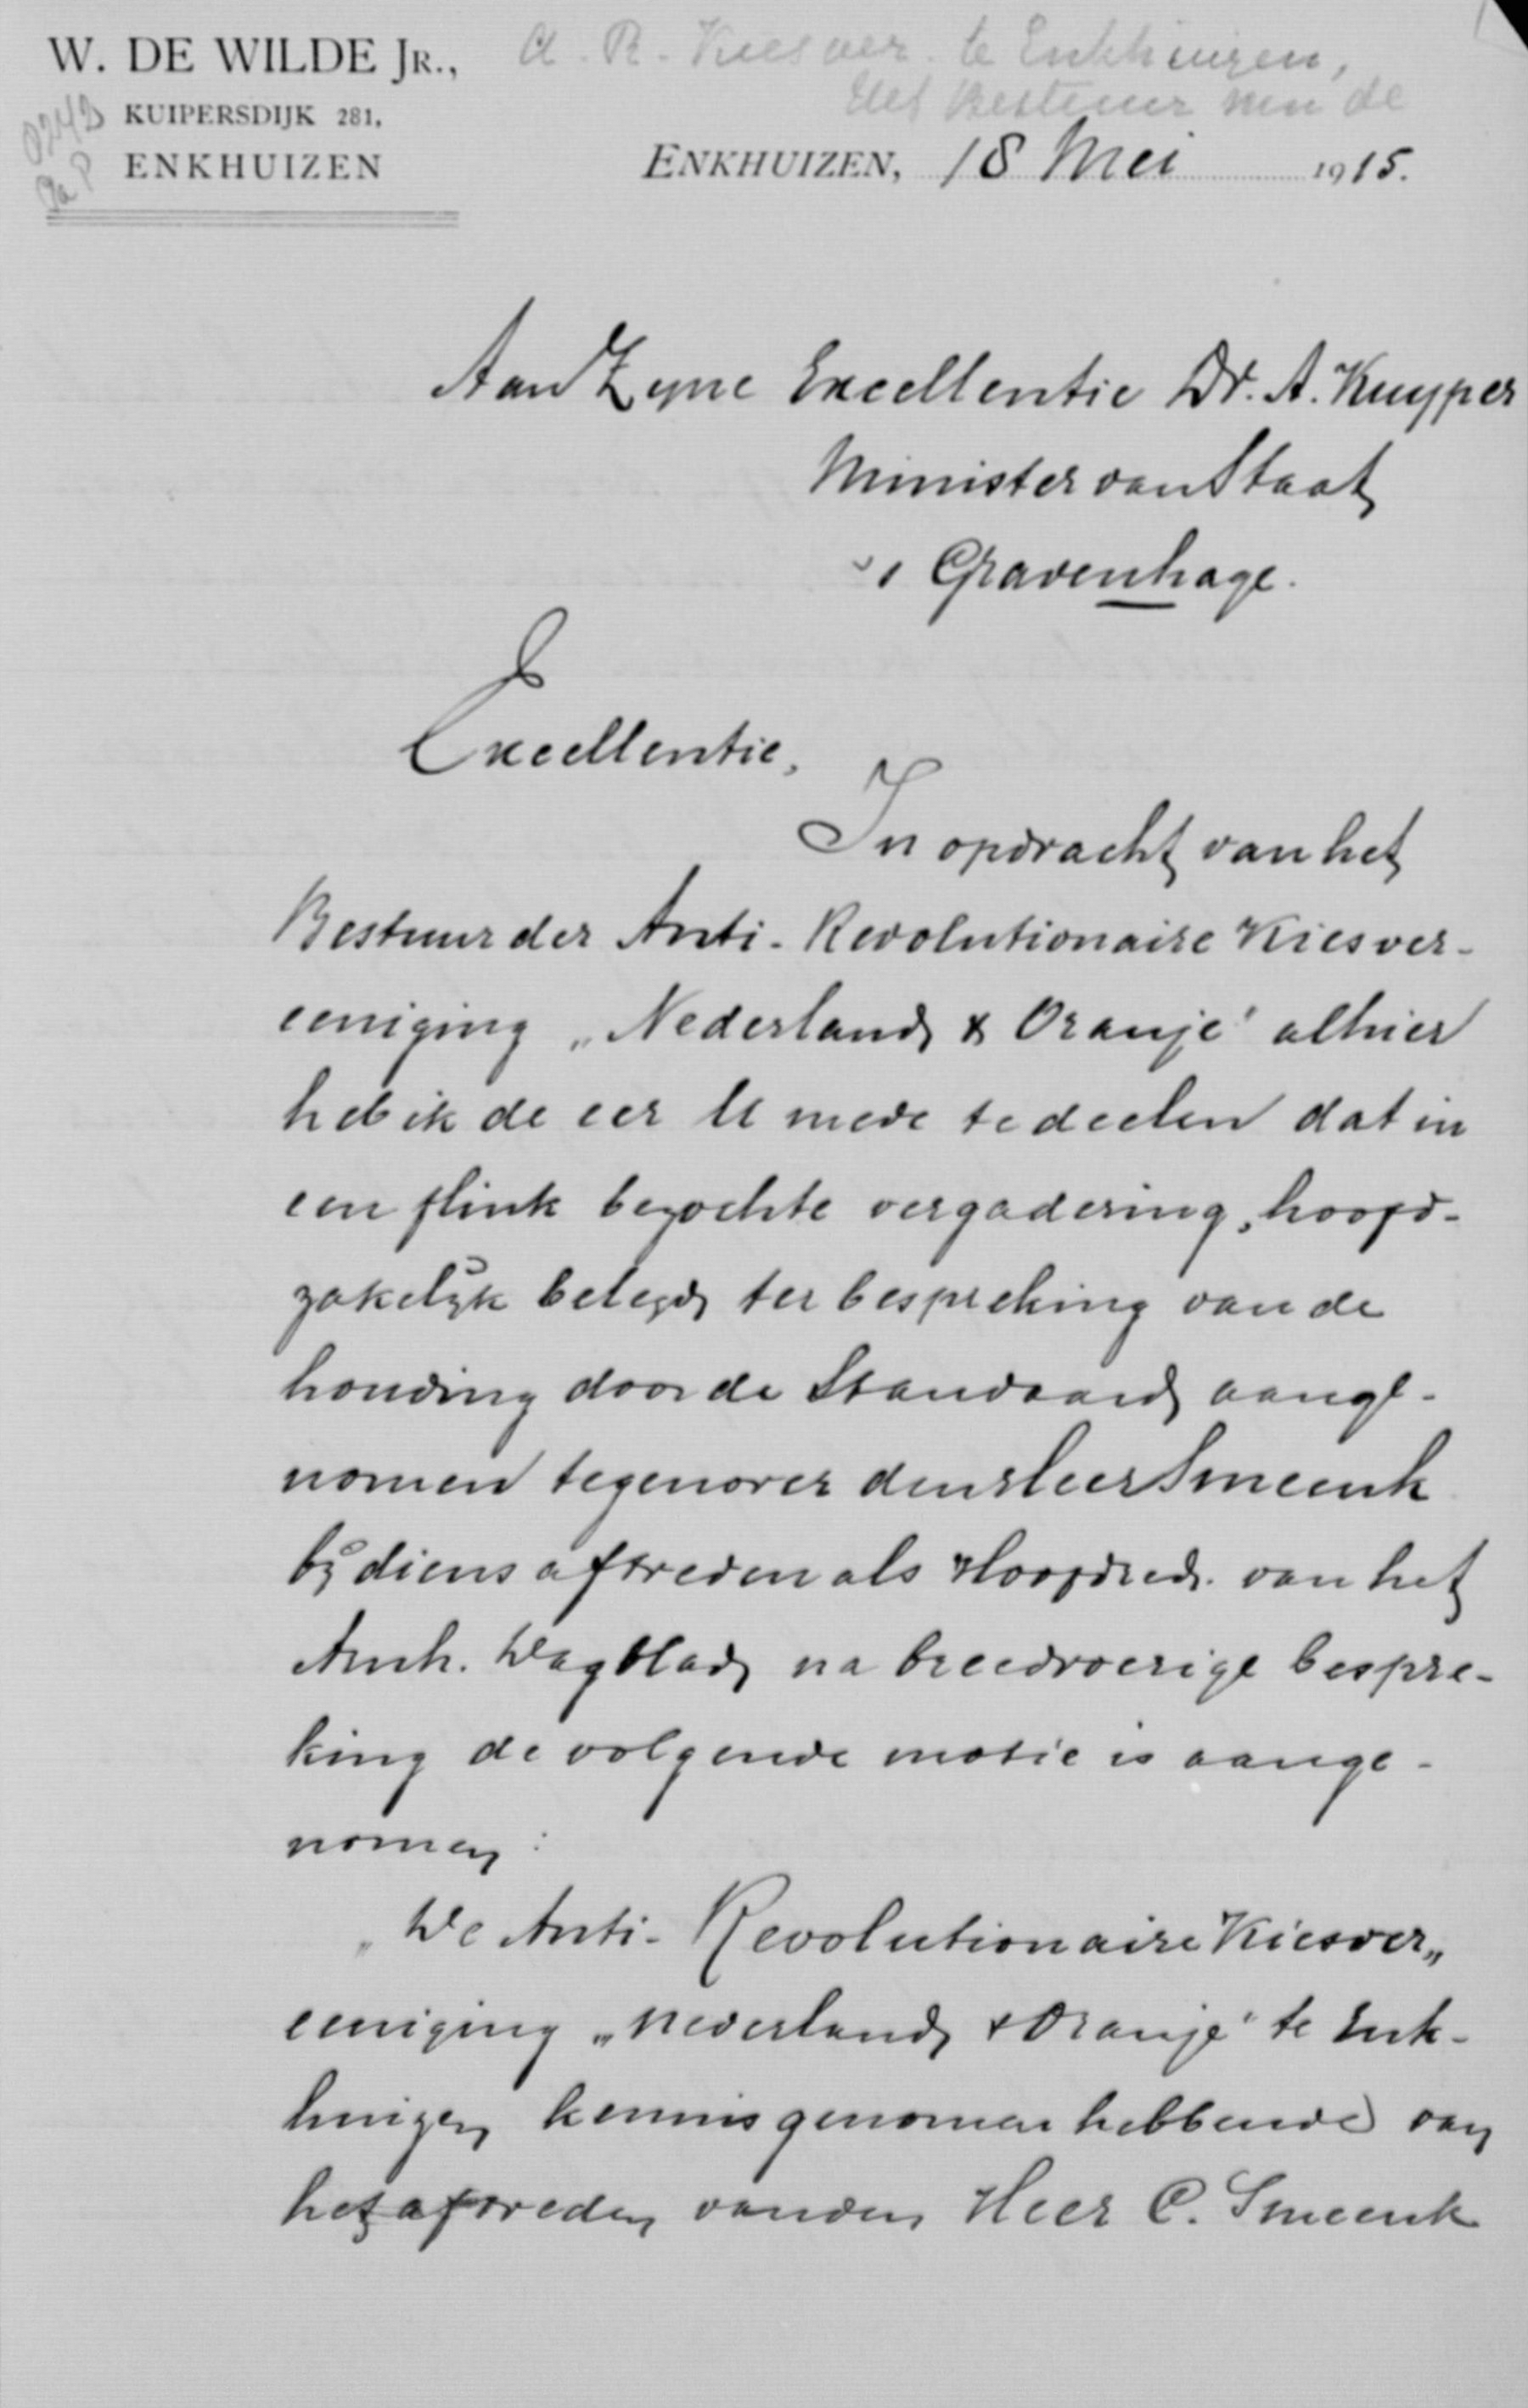 W. DE WILDE JR.,
KUIPERSDIJK 281,
ENKHUIZEN
A. R. Kiesver. te Enkhuizen,
Het Bestuur van de
ENKHUIZEN, 18 Mei 1915.
Aan Zyne Excellentie Dr. A. Kuyper
Minister van Staat
's Gravenhage.
Excellentie,
In opdracht van het
Bestuur der Anti-Revolutionaire Kiesver-
eeniging „Nederland & Oranje" alhier
heb ik de eer U mede te deelen dat in
een flink bezochte vergadering, hoofd-
zakelijk belegd ter bespreking van de
houding door de Standaard aange-
nomen tegenover den Heer Smeenk
bij diens aftreden als Hoofdred. van het
Arnh. Dagblad na breedvoerige bespre-
king de volgende motie is aange-
nomen:
„De Anti-Revolutionaire Kiesver„
eeniging „Nederland & Oranje" te Enk-
huizen kennis genomen hebbende van
het aftreden van den Heer C. Smeenk